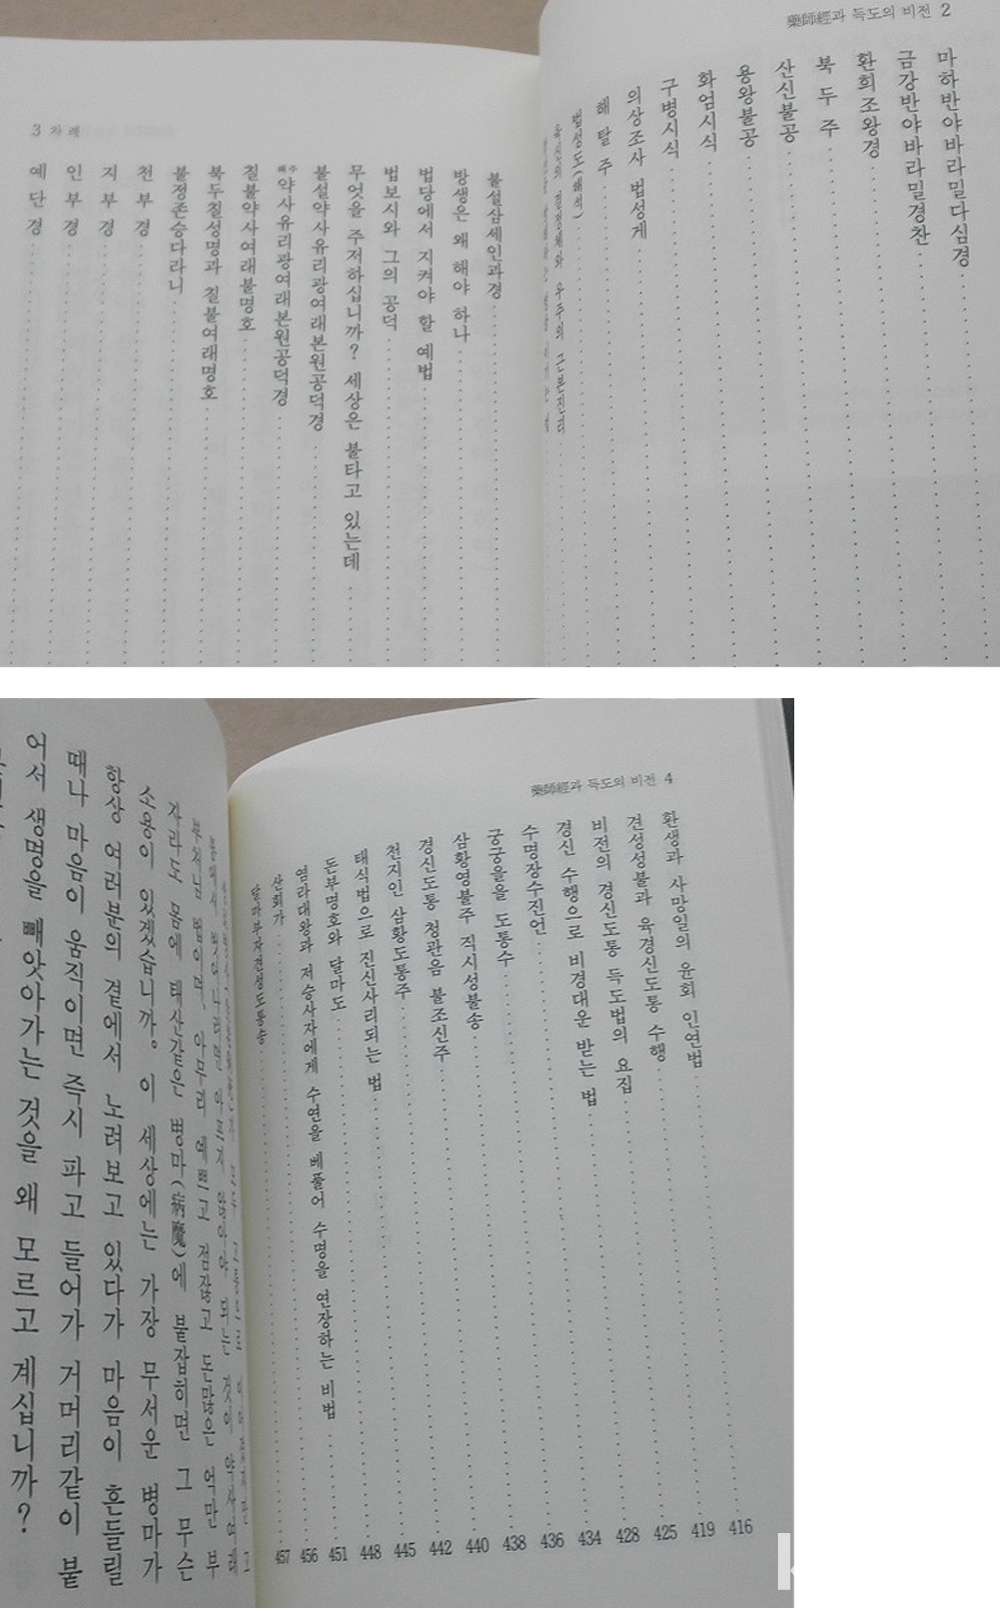 藥師經과 득도의 비전 2
마하반야바라밀다심경
금강반야바라밀경찬
환희조왕경
북두주
산신불공
용왕불공
화엄시식
구병시식
의상조사 법성게
해탈주
법성도(해석)
육신의 결정체와 우주의 근본진리
3 차례
불설삼세인과경
방생은 왜 해야 하나
법당에서 지켜야 할 예법
법보시와 그의 공덕
무엇을 주저하십니까? 세상은 불타고 있는데
불설약사유리광여래본원공덕경
해주 약사유리광여래본원공덕경
칠불약사여래불명호
북두칠성명과 칠불여래명호
불정존승다라니
천부경
지부경
인부경
예단경
藥師經과 득도의 비전 4
환생과 사망일의 윤회 인연법 416
견성성불과 육경신도통 수행 419
비전의 경신도통 득도법의 요집 425
경신 수행으로 비경대운 받는 법 428
수명장수진언 434
궁궁을을 도통수 436
삼황영불주 직시성불송 438
경신도통 청관음 불조신주 440
천지인 삼황도통주 442
태식법으로 진신사리되는 법 445
돈부명호와 달마도 448
염라대왕과 저승사자에게 수연을 베풀어 수명을 연장하는 비법 451
산회가 456
달마부자견성도통송 457
부처님 법이며, 아무리 예쁘고 점잖고 돈많은 억만 부
자라도 몸에 태산같은 병마(病魔)에 붙잡히면 그 무슨
소용이 있겠습니까. 이 세상에는 가장 무서운 병마가
항상 여러분의 곁에서 노려보고 있다가 마음이 흔들릴
때나 마음이 움직이면 즉시 파고 들어가 거머리같이 붙
어서 생명을 빼앗아가는 것을 왜 모르고 계십니까?